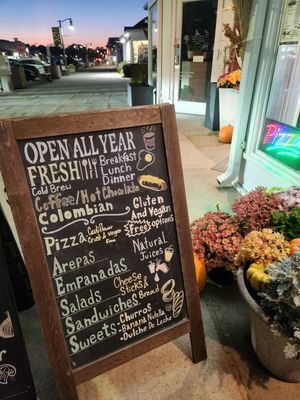 OPEN ALL YEAR
FRESH
Breakfast
Lunch
Dinner
Cold Brew
Coffee/Hot Chocolate
Colombian
Gluten
And Vegan
Free options
Pizza
Cauliflower
Crust & Vegan
Free
Arepas
Natural
Juices
Empanadas
Cheese
Sticks &
Bread
Salads
Sandwiches
Sweets:
Churros
Banana Nutella
Dulche De Leche